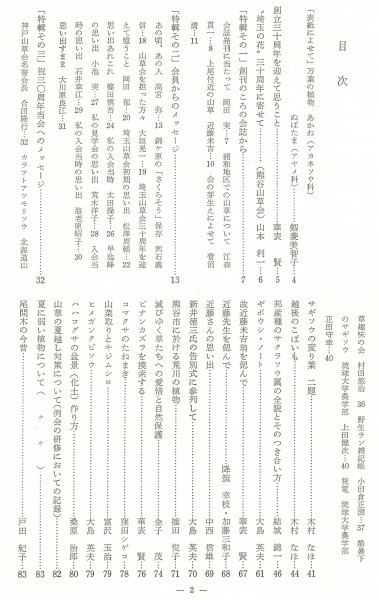 目次
「表紙によせて」万葉の植物 あかね（アカネソの科）
ぬばたま（アヤメ科）……廻菱美智子…4
創立三十周年を迎えて思うこと……華表 賢…5
"埼玉の花"三十周年に寄せて……（熊谷山草会）山本利一…6
「特輯その一」創刊のころの会誌から……7
会誌発刊に当たって 岡田 実…7 浦和地区での山草について 江森
貫一…8 上尾付近の山草 近藤米吉…10 会の芽生えによえて 菅沼
清…11
「特輯その二」会員からのメッセージ……13
あの頃、あの人 高宮 弥…13 錦ヶ原の「さくらそう」保存 輿石義
信…18 山草会を担った方々 大垣晃一…19 埼玉山草会三十周年を迎
えて憶うこと 岡田 郁…20 埼玉山草会初期の思い出 松澤周輔…22
思い出あれこれ 篠田慎治…24 私の入会当時 太田操子…26 早池峰
の思い出 小池 実…27 私の見学会の思い出 荒木洋子…28 入会当
時の思い出 石井幸江…29 私の入会当時の思い出 海老原昭子…30
思い出すまま 大川原良江…31
「特輯その三」祝三〇周年当会へのメッセージ……32
神戸山草会名誉会長 合田隆行…32 カラフトアツモリソウ 北海道山
草趣味の会 村田悠治…36 野生ラン雑記帳 小田倉正圀…37 酷暑下
のサギソウ 琉球大学農学部 上田健次…40 祝電 琉球大学農学部
正田守幸…40
サギソウの変り葉 二題……木村なほ…41
越後のこばいも……木村なほ…44
邦産種のサクラソウ属の全貌とそのつき合い方……結城錦一…46
ギボウシ・ノート……大島英夫…61
故近藤米吉翁を偲んで……華表 賢…67
近藤先生を偲んで……降旗幸枝・加藤三和子…68
近藤さんの思い出……中西信雄…69
新井徳三氏の告別式に参列して……大島英夫…70
熊谷市に於ける荒川の植物……篠田悦子…71
滅びゆく草たちへの愛情と自然保護……金子 茂…74
ビナンカズラを検索する……華表 賢…76
コマクサのたねまき……窪田シゲコ…78
山菜取りとキジムシロ……富沢玉治…79
ヒメガンクビソウ……大島英夫…79
ハハコグサの盆景（化土）作り方……桑原治郎…80
山草の夏越し対策について（例会の研修においての記録）……82
夏に弱い植物について（〃 〃）……83
尾間木の今昔……戸田紀子…83
— 2 —